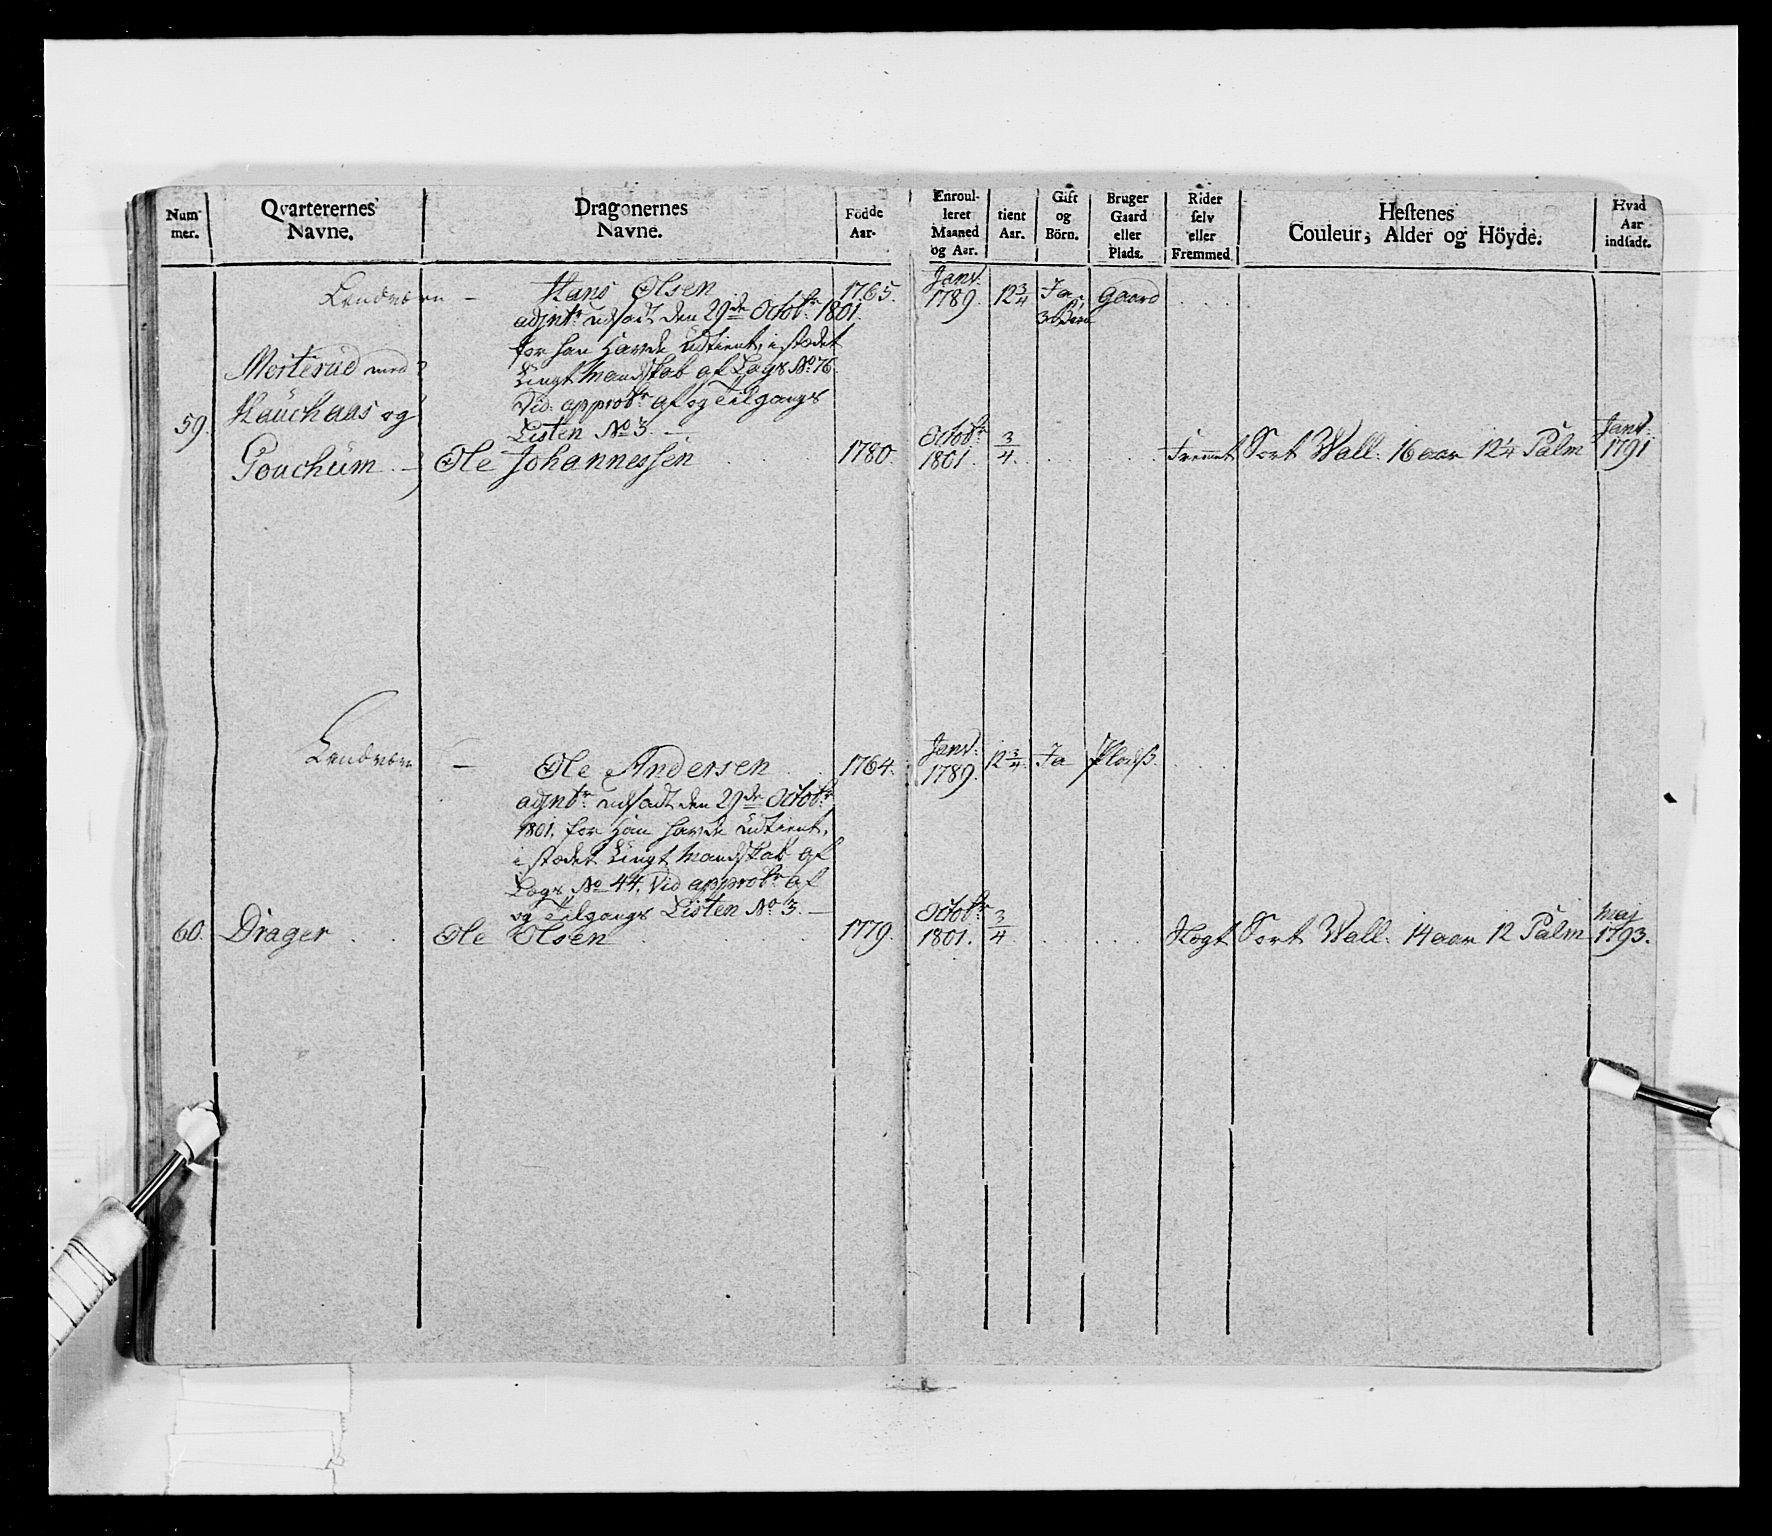 Num-
mer.
Qvarterernes
Navne.
Dragonernes
Navne.
Födde
Aar.
Enroul-
leret
Maaned
og Aar.
tient
Aar.
Gift
og
Börn.
Bruger
Gaard
eller
Plads.
Rider
selv
eller
Fremmed
Hestenes
Couleur, Alder og Höyde.
Hvad
Aar
indsadt.
Landværn — Hans Olsen 1765. Janv. 1789. 12 3/4 Ja, 3 Børn gaard
udsadt den 29de Octobr 1801.
for han havde udtient, i stædet
Lingt Mandskab af Lægs No 76
Vid. approbr af og Tilgangs
Listen No 3. —
59. Morterud med
Hauchaas og
Pouchum Ole Johannessen 1780. Octobr 1801. 3/4. Fremmt Sort Wall. 16 aar 12 1/4 Palm Janv. 1791
Landværn — Ole Andersen 1764. Janv. 1789. 12 3/4 Ja Plads.
udsadt den 29de Octobr
1801, for han havde udtient,
i stædet Lingt Mandskab af
Lægs No 44. Vid approbr af
og Tilgangs Listen No 3. —
60. Drager Ole Olsen 1779. Octobr 1801. 3/4 Sort Wall. 14 aar 12 Palm Maj 1793.